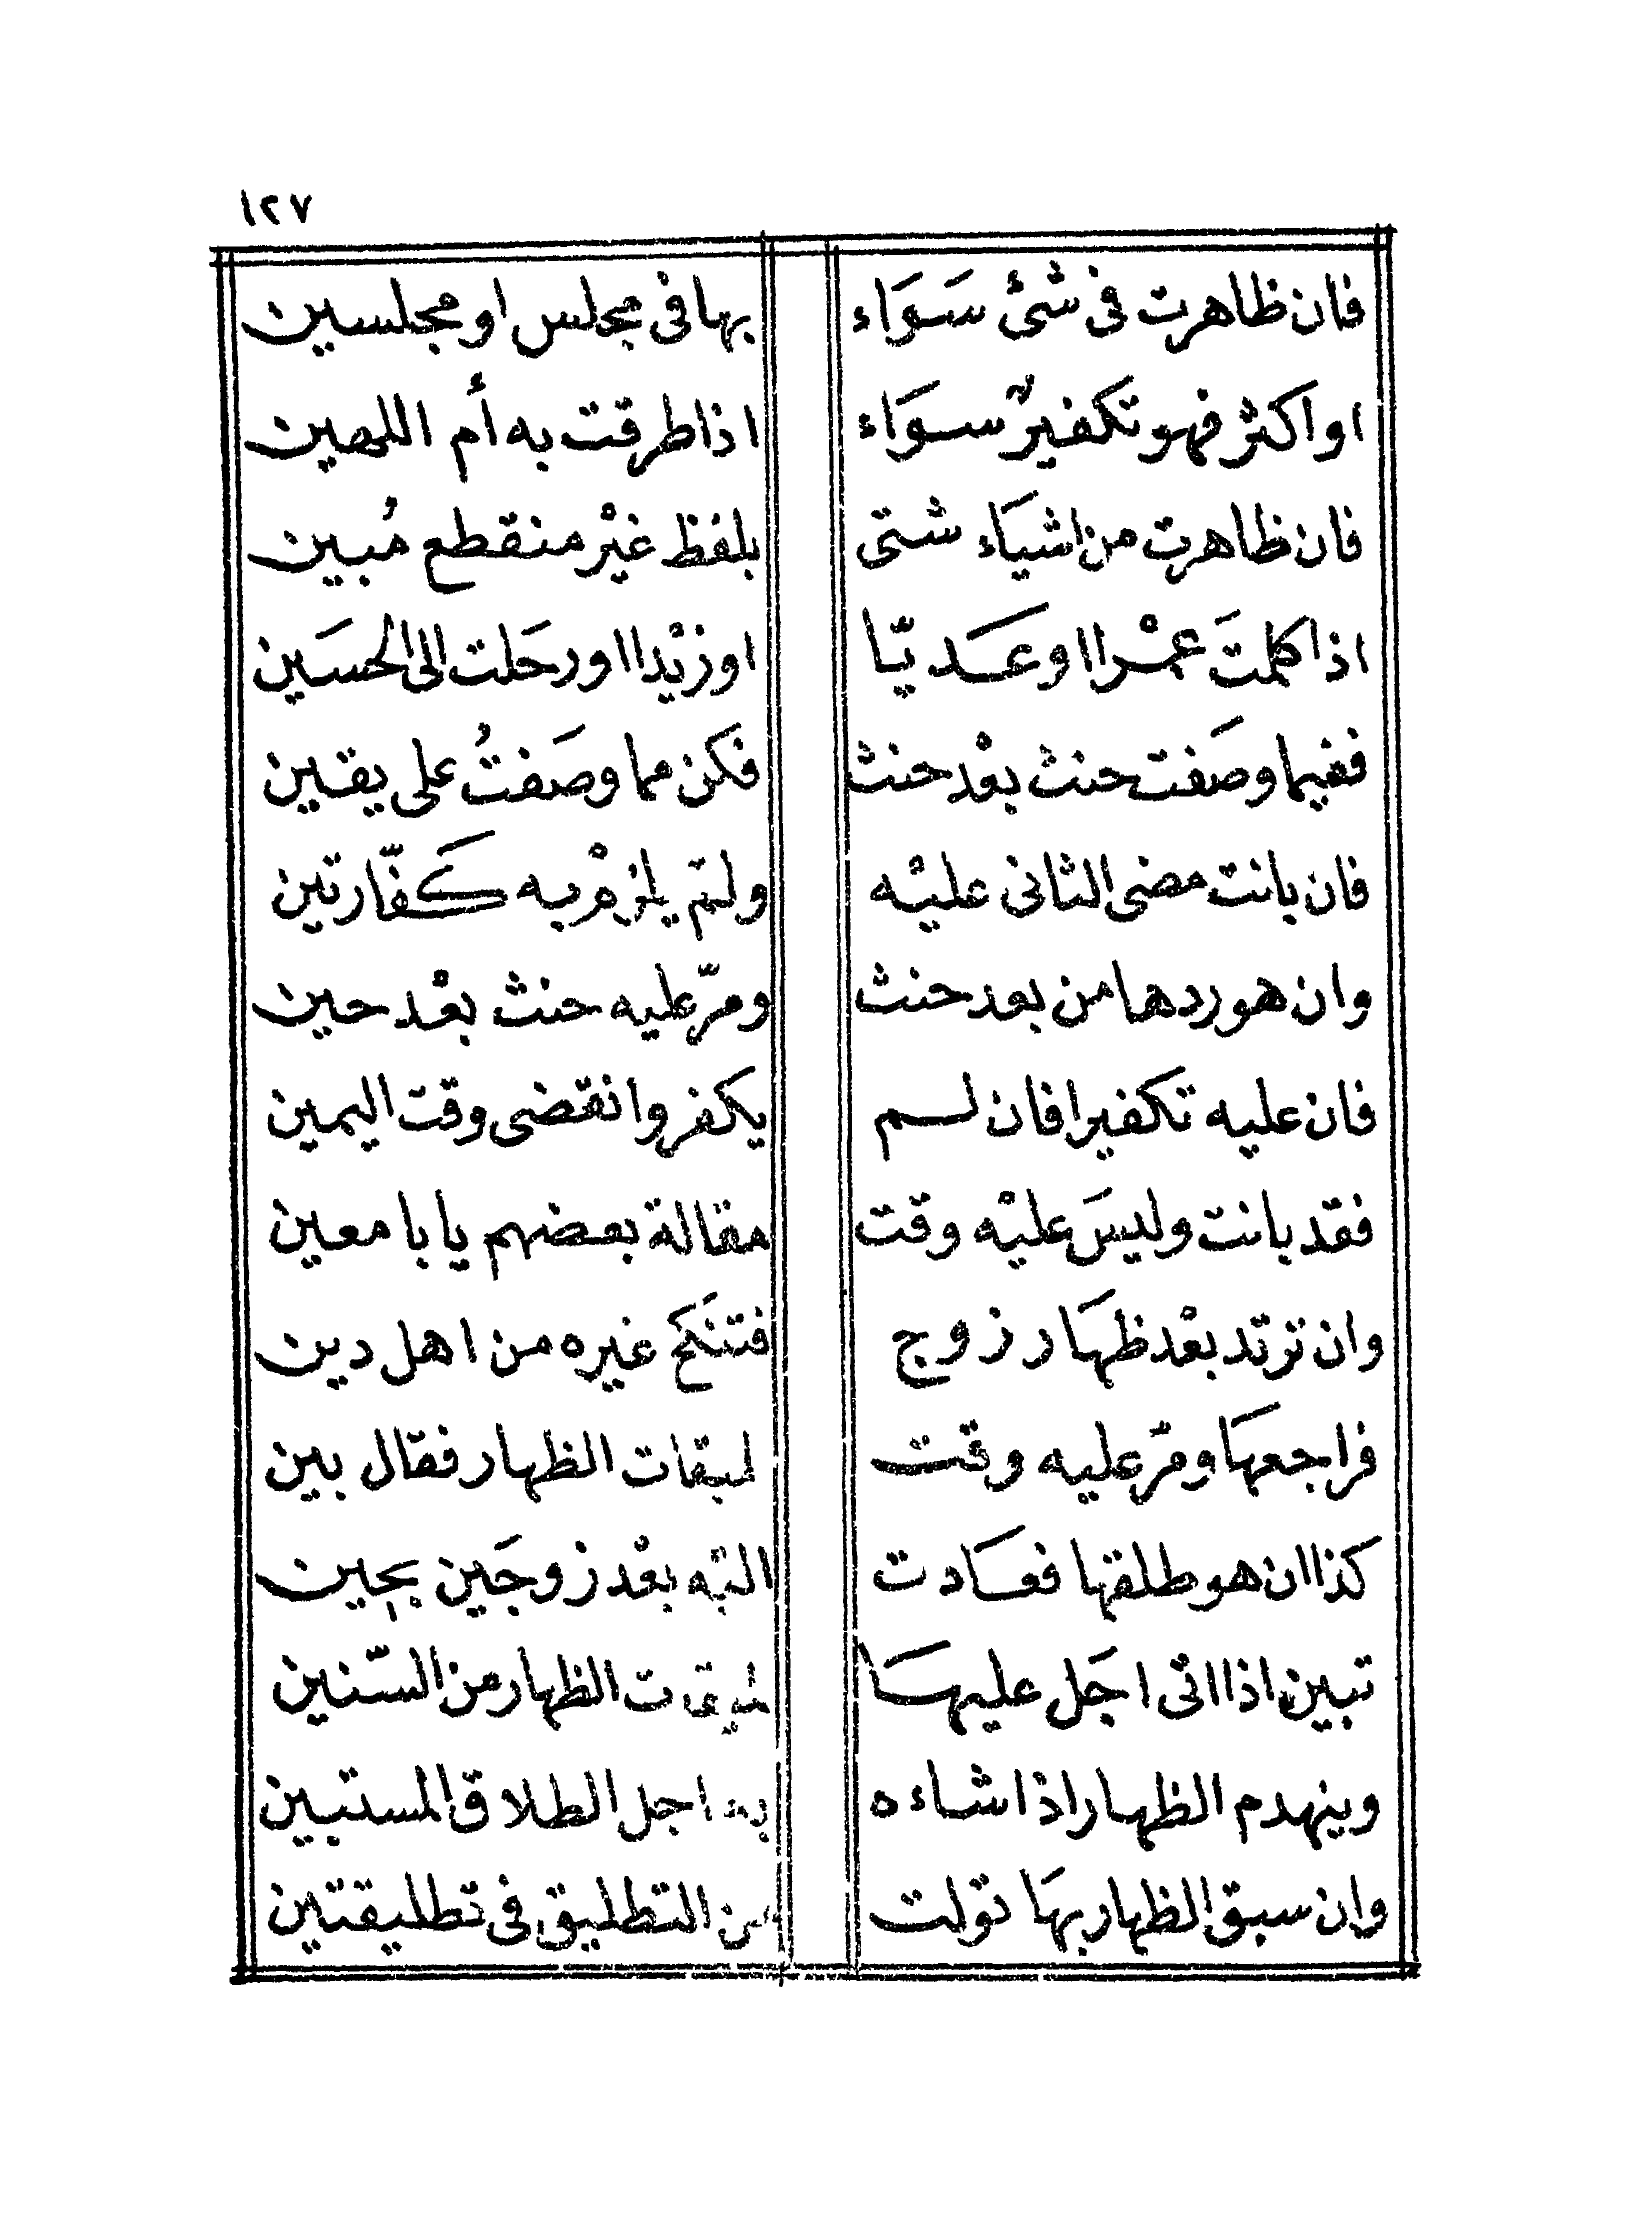 ١٢٧
فان ظاهرت فى شئ سَوَاء بها فى مجلس او مجلسين
او اكثر فهو تكفيرٌ سوَاء اذا طرقت به أم اللهين
فان ظاهرت من اشيَاء شتى بلفظ غيْر منقطع مُبين
اذا كلمتَ عمْرا او عَديّا او زيْدا او رحَلت الى الحسَين
ففيما وصَفت حنث بعْد حنث فكن مما وصَفتُ على يقين
فان بانت مضى الثانى عليْه ولم يلزمْ به كَفّارتين
وان هو ردها من بعد حنث ومرّ عليه حنث بعْد حين
فان عليه تكفيرا فان لم يكفر وانقضى وقت اليمين
فقد بانت وليسَ عليْه وقت مقالة بعضهم يا با معين
وان ترتد بعْد ظهَار زوج فتنكَح غيره من اهل دين
فراجعهَا ومرّ عليه وقت لميقات الظهار فقال بين
كذا ان هو طلقها فعَادت اليْه بعْد زوجَين بحين
تبين اذا اتى اجَل عليهَا الظهار من السّنين
وينهدم الظهار اذا شاءه به اجل الطلاق المستبين
وان سبق الظهار بهَا تولت من التطليق فى تطليقتين